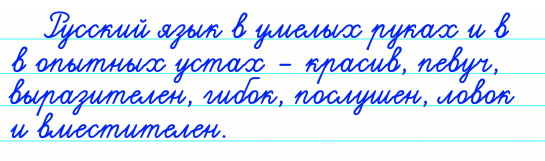 Русский язык в умелых руках и в
в опытных устах – красив, певуч,
выразителен, гибок, послушен, ловок
и вместителен.